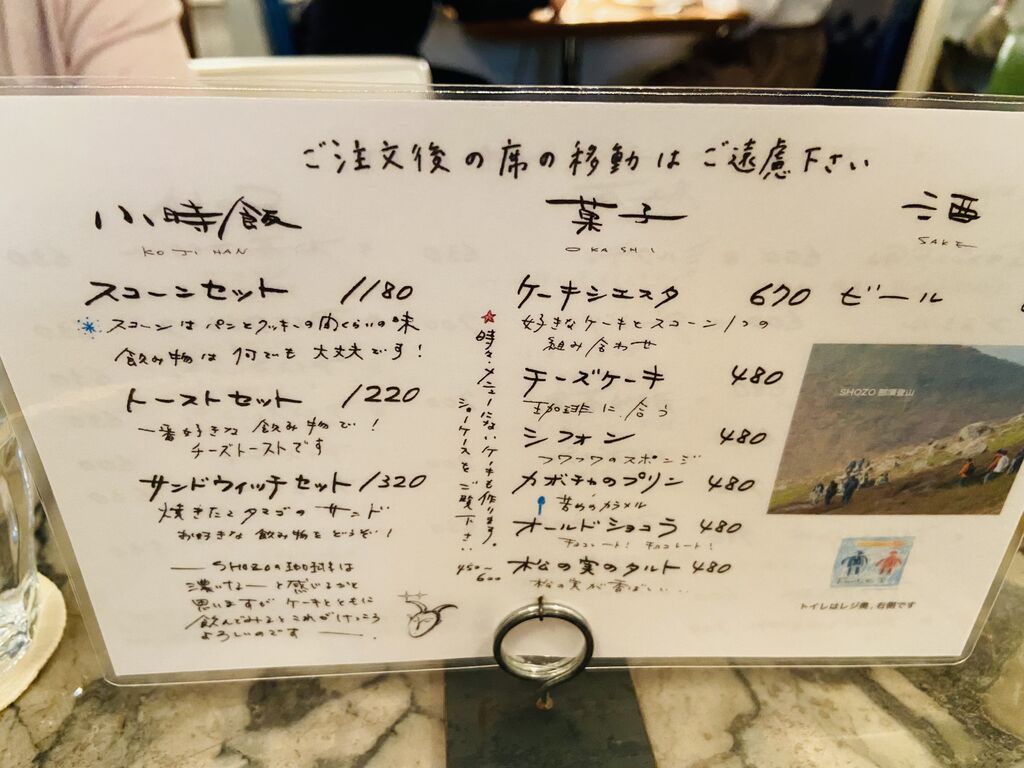 ご注文後の席の移動はご遠慮下さい
小時飯
KOJIHAN
スコーンセット 1180
スコーンはパンとクッキーの間くらいの味
飲み物は何でも大丈夫です!
トーストセット 1220
一番好きな飲み物で!
チーズトーストです
サンドウィッチセット 1320
焼きたてタマゴのサンド
お好きな飲み物をどうぞ!
SHOZOの珈琲は
濃いなーと感じるかと
思いますがケーキとともに
飲んでみるとこれがけっこう
よろしいのです
時々、メニューにないケーキも作ります。
ショーケースをご覧下さい
450〜
600
菓子
OKASHI
ケーキシエスタ 670
好きなケーキとスコーン1つの
組み合わせ
チーズケーキ 480
珈琲に合う
シフォン 480
フワフワのスポンジ
カボチャのプリン 480
苦めのカラメル
オールドショコラ 480
チョコレート!チョコレート!
松の実のタルト 480
松の実が香ばしい..
酒
SAKE
ビール
SHOZO 那須登山
トイレはレジ奥、右側です